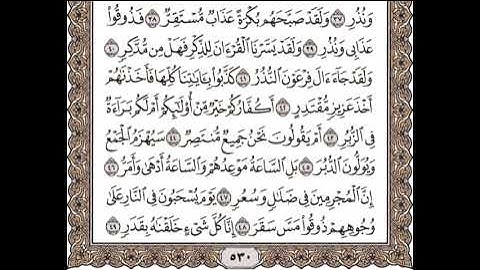 وَنُذُرِ ٣٧ وَلَقَدْ صَبَّحَهُم بُكْرَةً عَذَابٌ مُّسْتَقِرٌّ ٣٨ فَذُوقُوا۟
عَذَابِى وَنُذُرِ ٣٩ وَلَقَدْ يَسَّرْنَا ٱلْقُرْءَانَ لِلذِّكْرِ فَهَلْ مِن مُّدَّكِرٍ ٤٠
وَلَقَدْ جَآءَ ءَالَ فِرْعَوْنَ ٱلنُّذُرُ ٤١ كَذَّبُوا۟ بِـَٔايَٰتِنَا كُلِّهَا فَأَخَذْنَٰهُمْ
أَخْذَ عَزِيزٍ مُّقْتَدِرٍ ٤٢ أَكُفَّارُكُمْ خَيْرٌ مِّنْ أُو۟لَٰٓئِكُمْ أَمْ لَكُم بَرَآءَةٌ
فِى ٱلزُّبُرِ ٤٣ أَمْ يَقُولُونَ نَحْنُ جَمِيعٌ مُّنتَصِرٌ ٤٤ سَيُهْزَمُ ٱلْجَمْعُ
وَيُوَلُّونَ ٱلدُّبُرَ ٤٥ بَلِ ٱلسَّاعَةُ مَوْعِدُهُمْ وَٱلسَّاعَةُ أَدْهَىٰ وَأَمَرُّ ٤٦
إِنَّ ٱلْمُجْرِمِينَ فِى ضَلَٰلٍ وَسُعُرٍ ٤٧ يَوْمَ يُسْحَبُونَ فِى ٱلنَّارِ عَلَىٰ
وُجُوهِهِمْ ذُوقُوا۟ مَسَّ سَقَرَ ٤٨ إِنَّا كُلَّ شَىْءٍ خَلَقْنَٰهُ بِقَدَرٍ ٤٩
٥٣٠